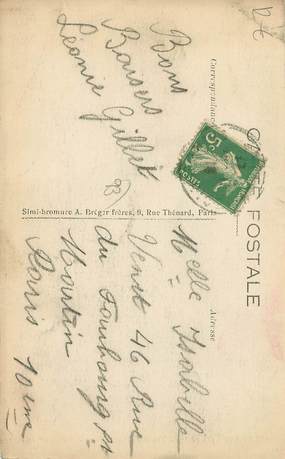 CARTE POSTALE
Correspondance
Adresse
Bons
Baisers
Léonie Gillet
5c
POSTES
Simi-bromure A. Bréger frères, 9, Rue Thénard, Paris
Melle Isabelle
46 Rue
du Faubourg St
Martin
Paris 10eme